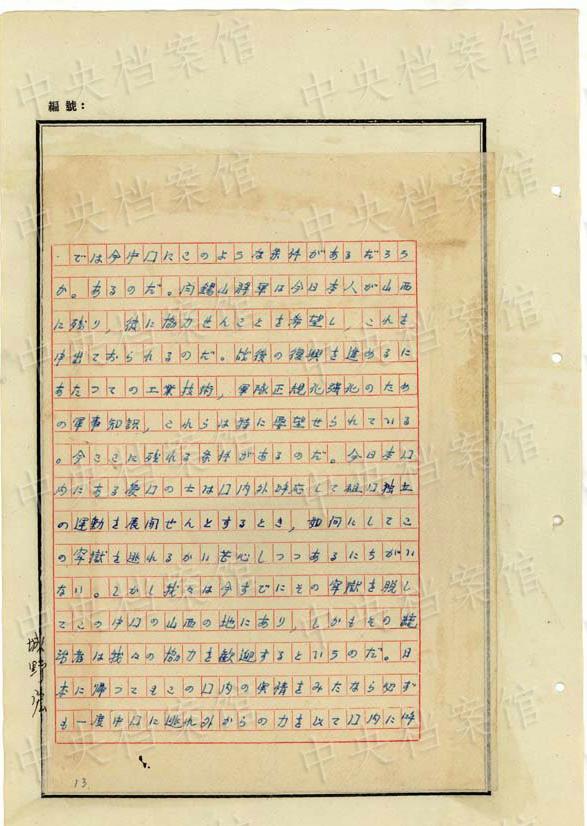 編號：
では今中口にこのような条件があるだろう
か。あるのだ。閻錫山将軍は今日本人が山西
に残り，彼に協力せんことを希望し，これを
申出ておられるのだ。戦後の復興を進めるに
あたつての工業技術，軍隊正規化強化のため
の軍事知識，これらは特に要望せられている
。今ここに残れる条件があるのだ。今日本口
内にある愛口の士は口内外呼応して祖口独立
の運動を展開せんとするとき，如何にしてこ
の牢獄を逃れるかに苦心しつつあるにちがい
ない。しかし我々は今すでにその牢獄を脱し
てこの中口の山西の地にあり，しかもその統
治者は我々の協力を歓迎するというのだ。日
本に帰つてもこの口内の実情をみたなら必ず
も一度中口に逃れ外からの力を以て口内に呼
城野宏
13
中央档案馆